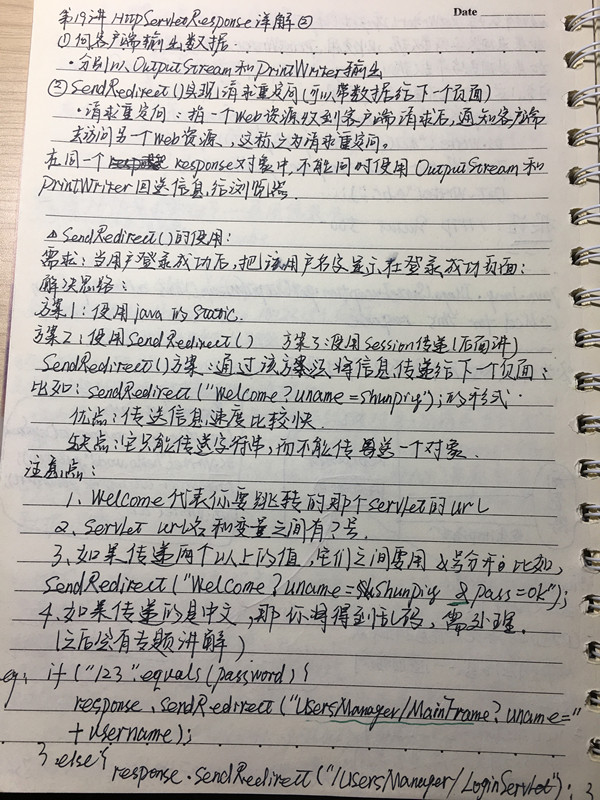 Date
第19讲 HttpServletResponse详解②
①向客户端输出数据.
·分别以OutputStream和PrintWriter输出
②SendRedirect()实现请求重定向(可以带数据给下一个页面)
·请求重定向:指一个Web资源收到客户端请求后,通知客户端
去访问另一个Web资源,这称之为请求重定向。
在同一个 response对象中,不能同时使用OutputStream和
PrintWriter回送信息给浏览器.
SendRedirect()的使用:
需求:当用户登录成功后,把该用户名字显示在登录成功页面:
解决思路:
方案1:使用java的Static.
方案2:使用SendRedirect() 方案3:使用Session传递(后面讲)
SendRedirect()方案:通过该方法将信息传递给下一个页面:
比如:sendRedirect("Welcome?uname=Shunping");的形式.
优点:传送信息速度比较快.
缺点:它只能传送字符串,而不能传送一个对象.
注意点:
1、Welcome代表你要跳转的那个servlet的url
2、Servlet url名和变量之间有?号.
3、如果传递两个以上的值,它们之间需用&号分开 比如,
SendRedirect("Welcome?uname=Shunping&pass=ok");
4.如果传递的是中文,那你将得到乱码,需处理.
(之后会有专题讲解)
eg: if("123".equals(password){
response.sendRedirect("UsersManager/MainFrame?uname="
+username);
}else{
response.sendRedirect("/UsersManager/LoginServlet"); }